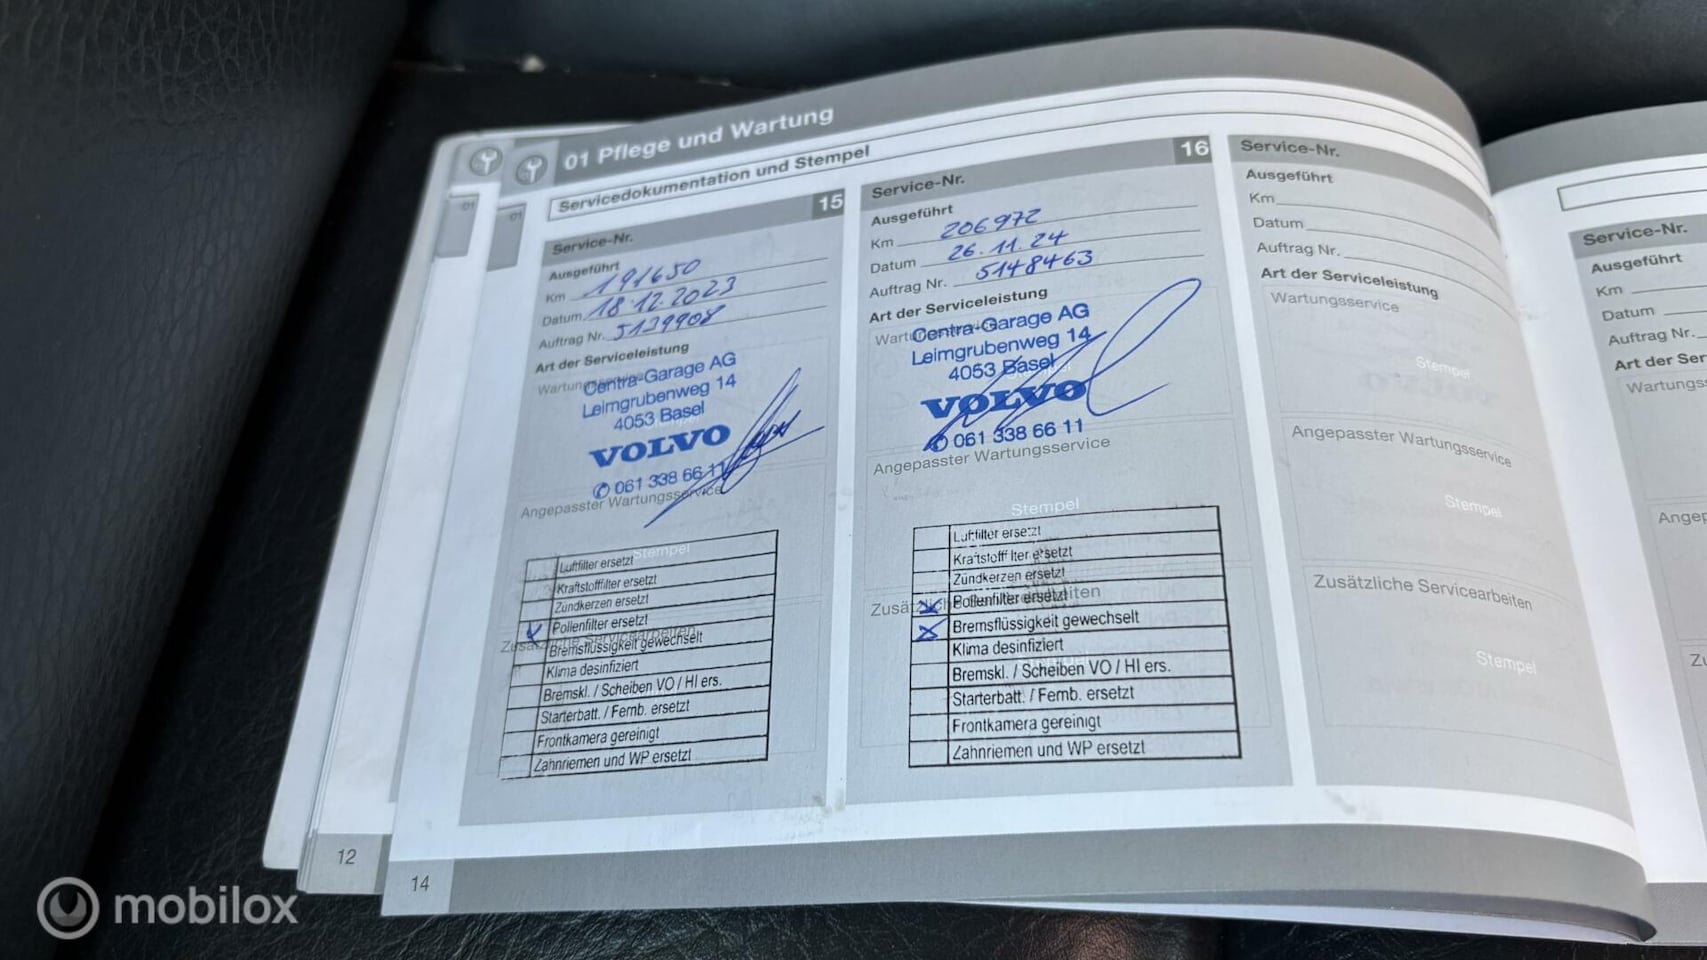 01 Pflege und Wartung
Servicedokumentation und Stempel
01
01
Service-Nr.
15
Ausgeführt
Km 191650
Datum 18.12.2023
Auftrag Nr. 5139908
Art der Serviceleistung
Wartungsservice
Centra-Garage AG
Leimgrubenweg 14
4053 Basel
VOLVO
061 338 66 11
Angepasster Wartungsservice
Stempel
Luftfilter ersetzt
Kraftstofffilter ersetzt
Zündkerzen ersetzt
X Pollenfilter ersetzt
Zusätzliche Servicearbeiten
Bremsflüssigkeit gewechselt
Klima desinfiziert
Bremskl. / Scheiben VO / HI ers.
Starterbatt. / Fernb. ersetzt
Frontkamera gereinigt
Zahnriemen und WP ersetzt
Service-Nr.
16
Ausgeführt
Km 206972
Datum 26.11.24
Auftrag Nr. 5148463
Art der Serviceleistung
Centra-Garage AG
Leimgrubenweg 14
4053 Basel
VOLVO
061 338 66 11
Angepasster Wartungsservice
Stempel
Luftfilter ersetzt
Kraftstofffilter ersetzt
Zündkerzen ersetzt
X Pollenfilter ersetzt
X Bremsflüssigkeit gewechselt
Klima desinfiziert
Bremskl. / Scheiben VO / HI ers.
Starterbatt. / Fernb. ersetzt
Frontkamera gereinigt
Zahnriemen und WP ersetzt
Service-Nr.
Ausgeführt
Km
Datum
Auftrag Nr.
Art der Serviceleistung
Wartungsservice
Stempel
Angepasster Wartungsservice
Stempel
Zusätzliche Servicearbeiten
Stempel
Service-Nr.
Ausgeführt
Km
Datum
Auftrag Nr.
Art der Ser
Wartungs
Angep
Zu
12
14
mobilox